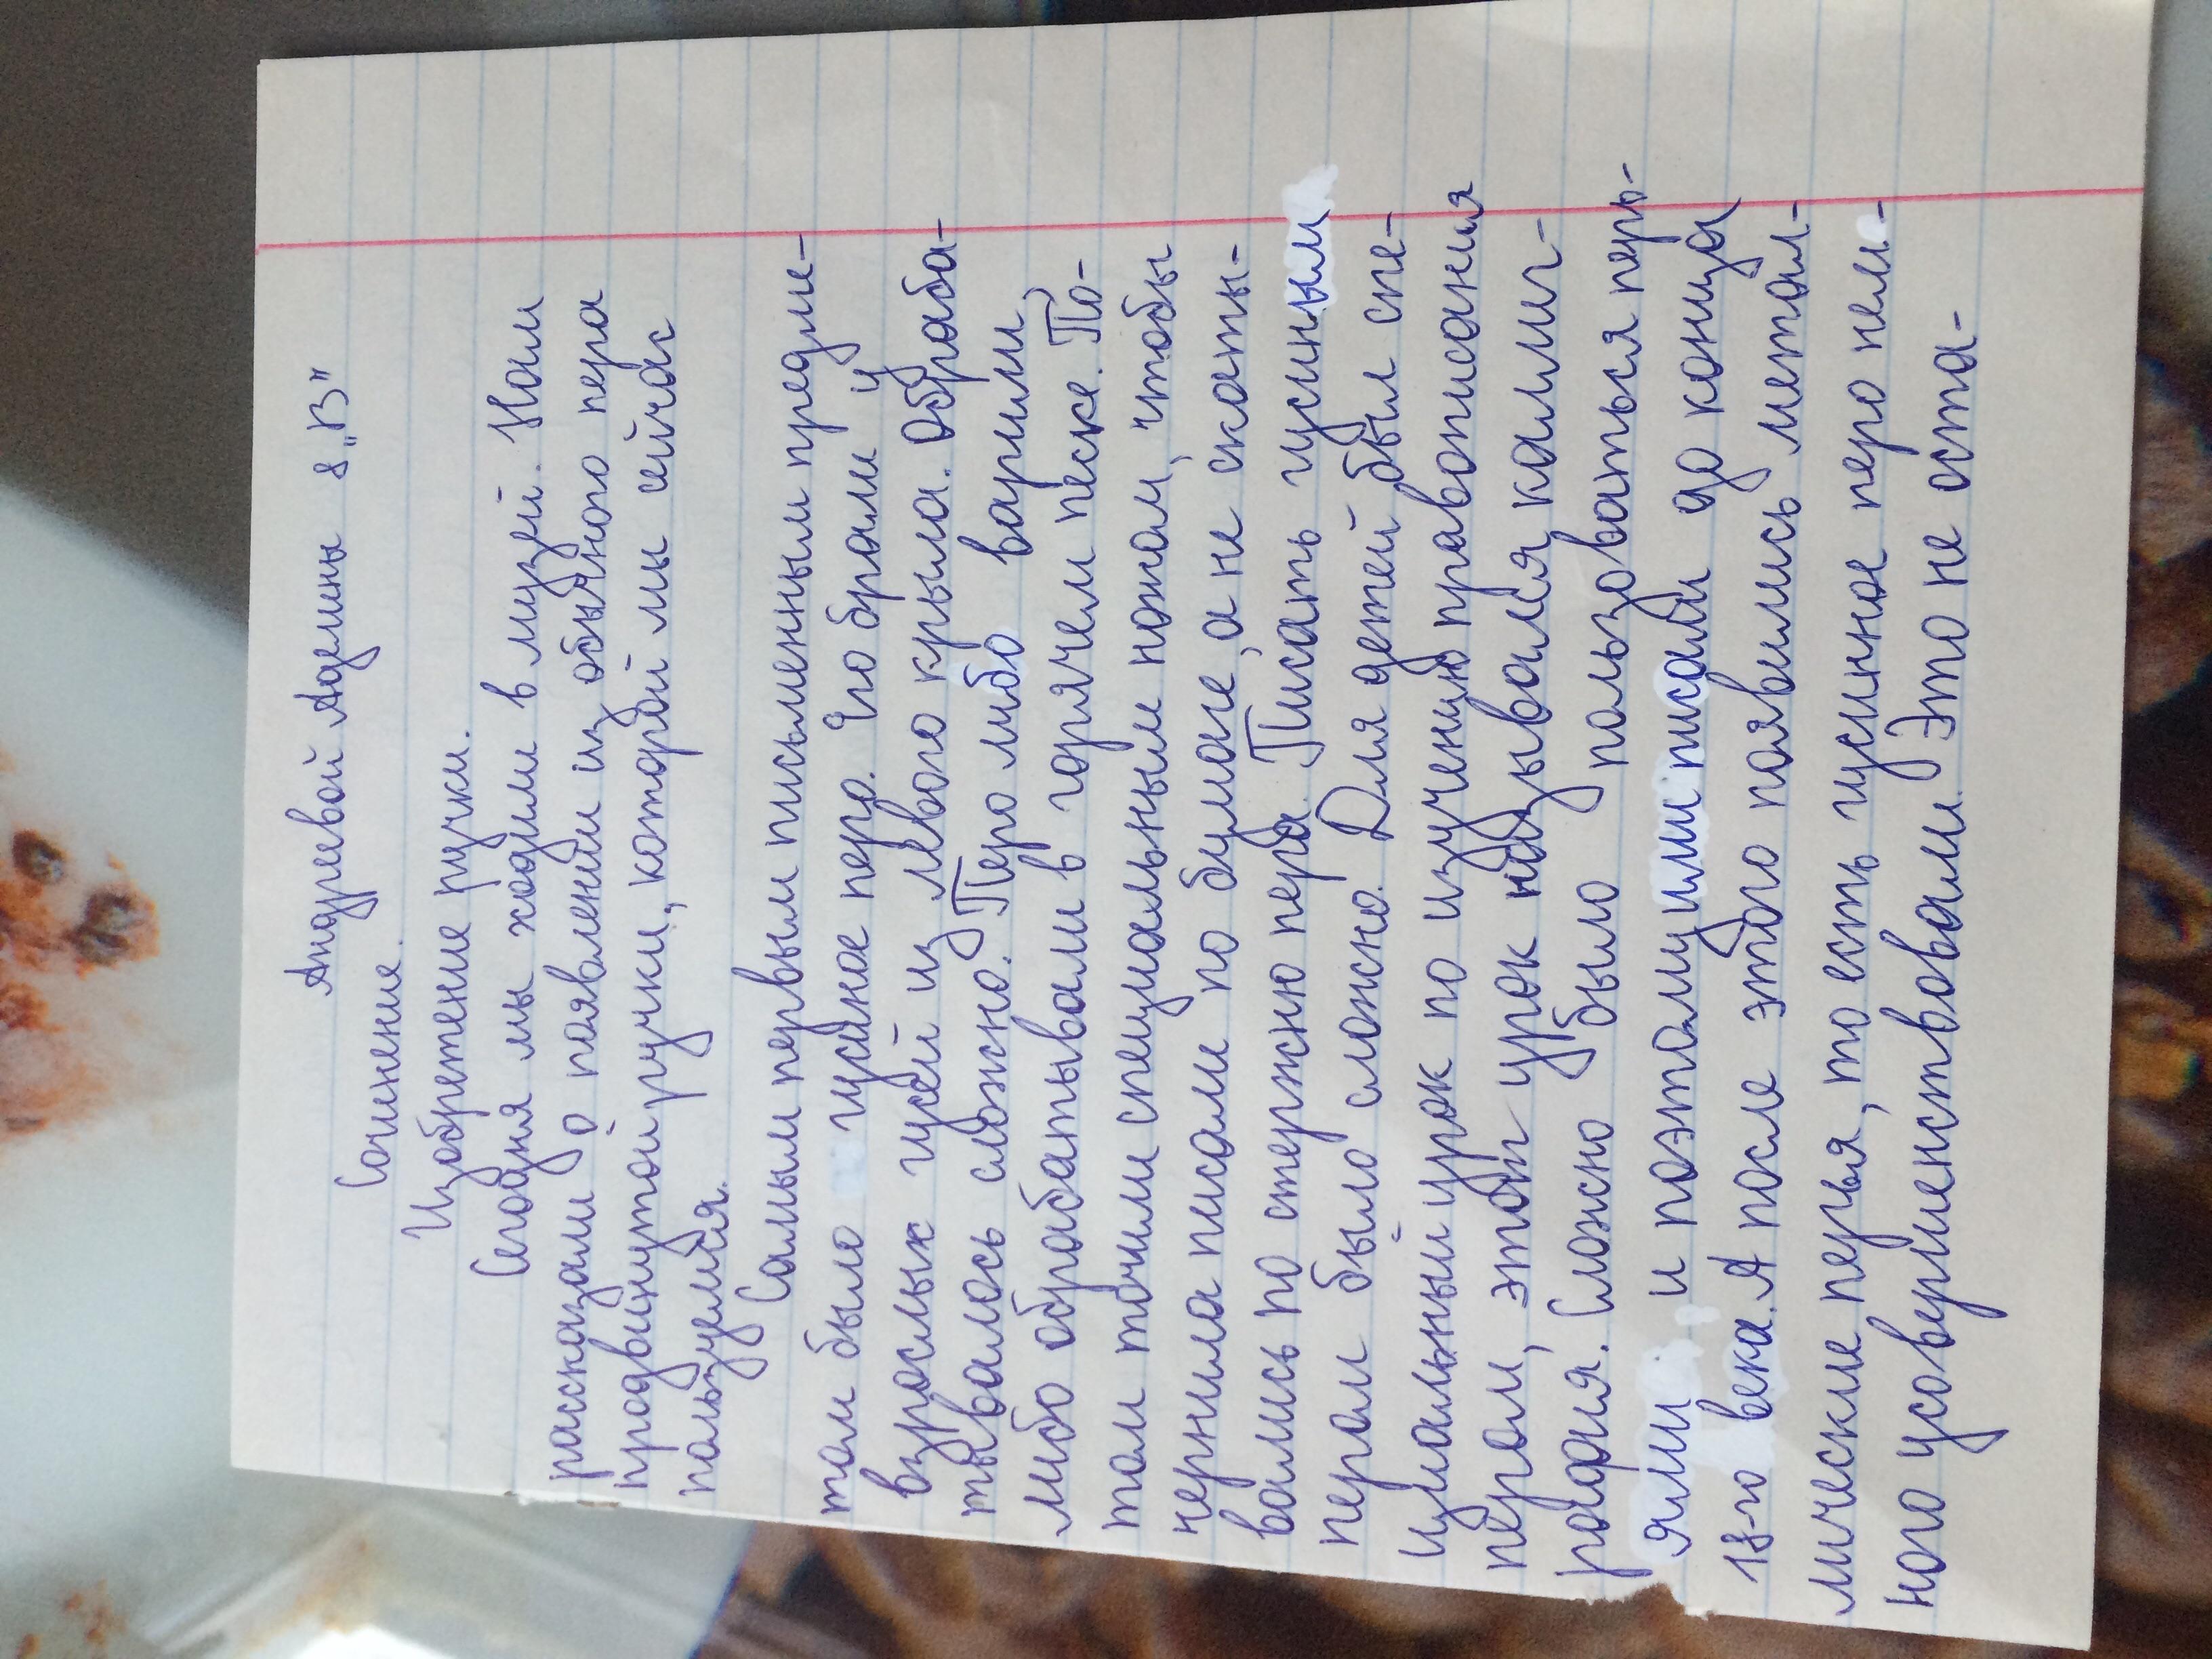 Андреевой Аделины 8 „В"
Сочинение.
Изобретение ручки.
Сегодня мы ходили в музей. Нам
рассказали о появлении из обычного пера
продвинутой ручки, которой мы сейчас
пользуемся.
Самым первым письменным предме-
том было гусиное перо. Его брали у
взрослых гусей из левого крыла. Обраба-
тывалось сложно. Перо либо варили,
либо обрабатывали в горячем песке. По-
том точили специальным ножом, чтобы
чернила писали по бумаге, а не скаты-
вались по стержню пера. Писать гусиным
пером было сложно. Для детей был спе-
циальный урок по изучению правописания
пером, этот урок назывался каллиг-
рафия. Сложно было пользоваться перь-
ями и поэтому ими писали до конца
18-го века. А после этого появились метал-
лические перья, то есть гусинное перо нем-
ного усовершенствовали. Это не оста-